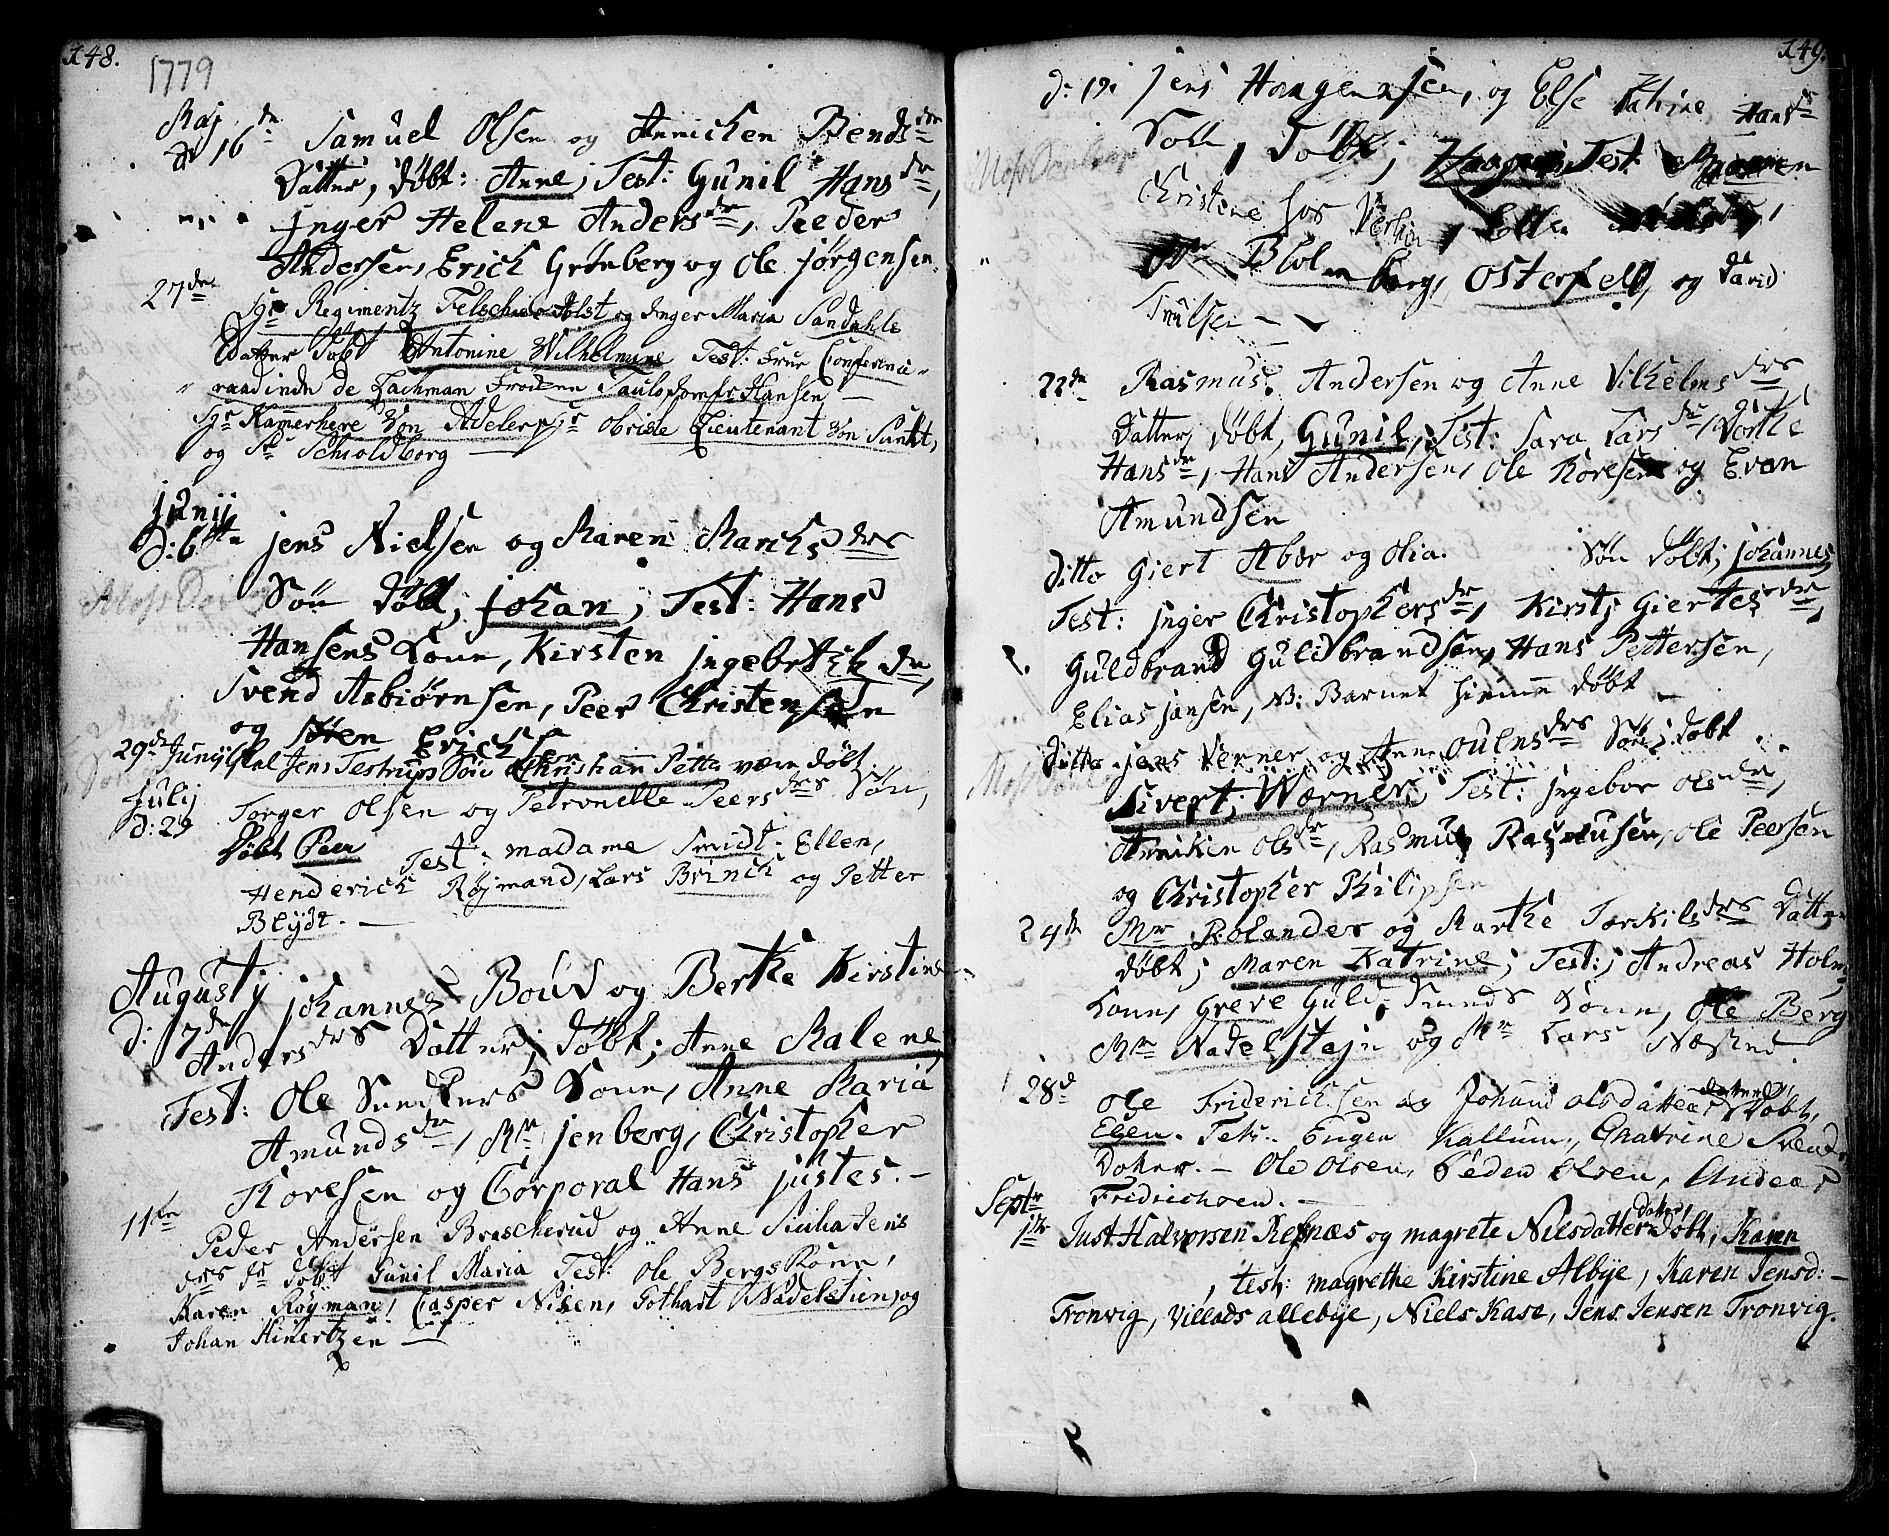 148.
1779
Maj
d: 16 dn Samuel Olsen og Annicken Bends dr
Datter, døbt: Anne; Test: Gunil Hans dr,
Inger Helene Anders dr, Peeder
Andersen, Erich Grønberg og Ole Jørgensen.
27 dn Sr Regimentz Felscher Alst og Inger Maria Sandahls
Datter døbt Antonine Wilhelmine Test: Frue Conferentz
raadinde de Lachman Frøiken Jomfr Hansen
Hr Kamerhere Von Adeler, Hr Obriste Lieutenant von
og Sr Schioldborg
Junij
d: 6te Jens Nielsen og Maren Marchs drs
Søn døbt; Johan; Test: Hans
Hansens Kone, Kirsten Ingebret dr,
Svend Asbiørnsen, Peer Christensen
og Søren Erichsen
29de Junij Jens Testrups Søn Christian Petter være døbt.
Julij
d: 29 Torger Olsen og Petronelle Peers drs Søn,
Døbt Peer Test: madame Smidt. Ellen,
Henderich Røjmand, Lars Brinch og Petter
Blydt. —
Augustij Johannes Boud og Berthe Kirstine
d: 7 dn Anders drs Datter; døbt; Anne Malene,
Test: Ole Snedkers Kone, Anne Maria
Amunds dr, Mr Jenberg, Christopher
Thoresen og Corporal Hans Justes. —
11te Peder Andersen Brescherud og Anne Sicilia Jens
drs dr døbt Gunil Maria Test: Ole Bergs Kone,
Karen Røyman, Casper Nilsen, Gothart Nadelstien, og
Johan Hinertzen —
149.
d: 19. Jens Haagensen, og Else Katrine Hans dr
Søn, Døbt; Haagen, Test:
Christine hos Elle
Blolmberg, Osterfeld, og David
Trulsen —
22 dn Rasmus Andersen og Anne Vilhelms drs
Datter, døbt, Gunil, Test: Sara Lars dr, Dorthe
Hans dr, Hans Andersen, Ole Thoresen og Even
Amundsen
Ditto Giert Abor og Olia. Søn døbt; Johannes,
Test: Inger Christophers dr, Kirstj Giertes dr,
Guldbrand Guldbrandsen, Hans Pettersen,
Elias Jansen, N: Barnet hiemme døbt —
Ditto Jens Verner og Anne drs Søn; døbt
Sivert; Wærner; Test: Ingebor Ols dr,
Anniken Ols dr, Rasmus Rasmusen, Ole Peersen
og Christopher Philipsen
24 dn Mr Rolander og Marthe Torkils drs Datter
døbt; Maren Katrine; Test:; Andreas Holms
Kone, Greve Guld Smeds Kone, Ole Berg
Mr Nadelstejn og Mr Lars Næsted.
28d Ole Friderichsen og Johane Olsdatters dater Døbt,
Elen. Tes:. Eugen Kallum, Chatrine Svends
Doter. — Ole Olsen, Peder Olsen, Andeas
Fridrichsen. —
Septr
1te Just Halvorsen Refnæs og magrete Nielsdatter dater Døbt, Karen
, test: magrethe Kirstine Albye, Karen Jensd: —
Tronvig, Villads allebye, Niels Kase, Jens Jensen Tronvig.